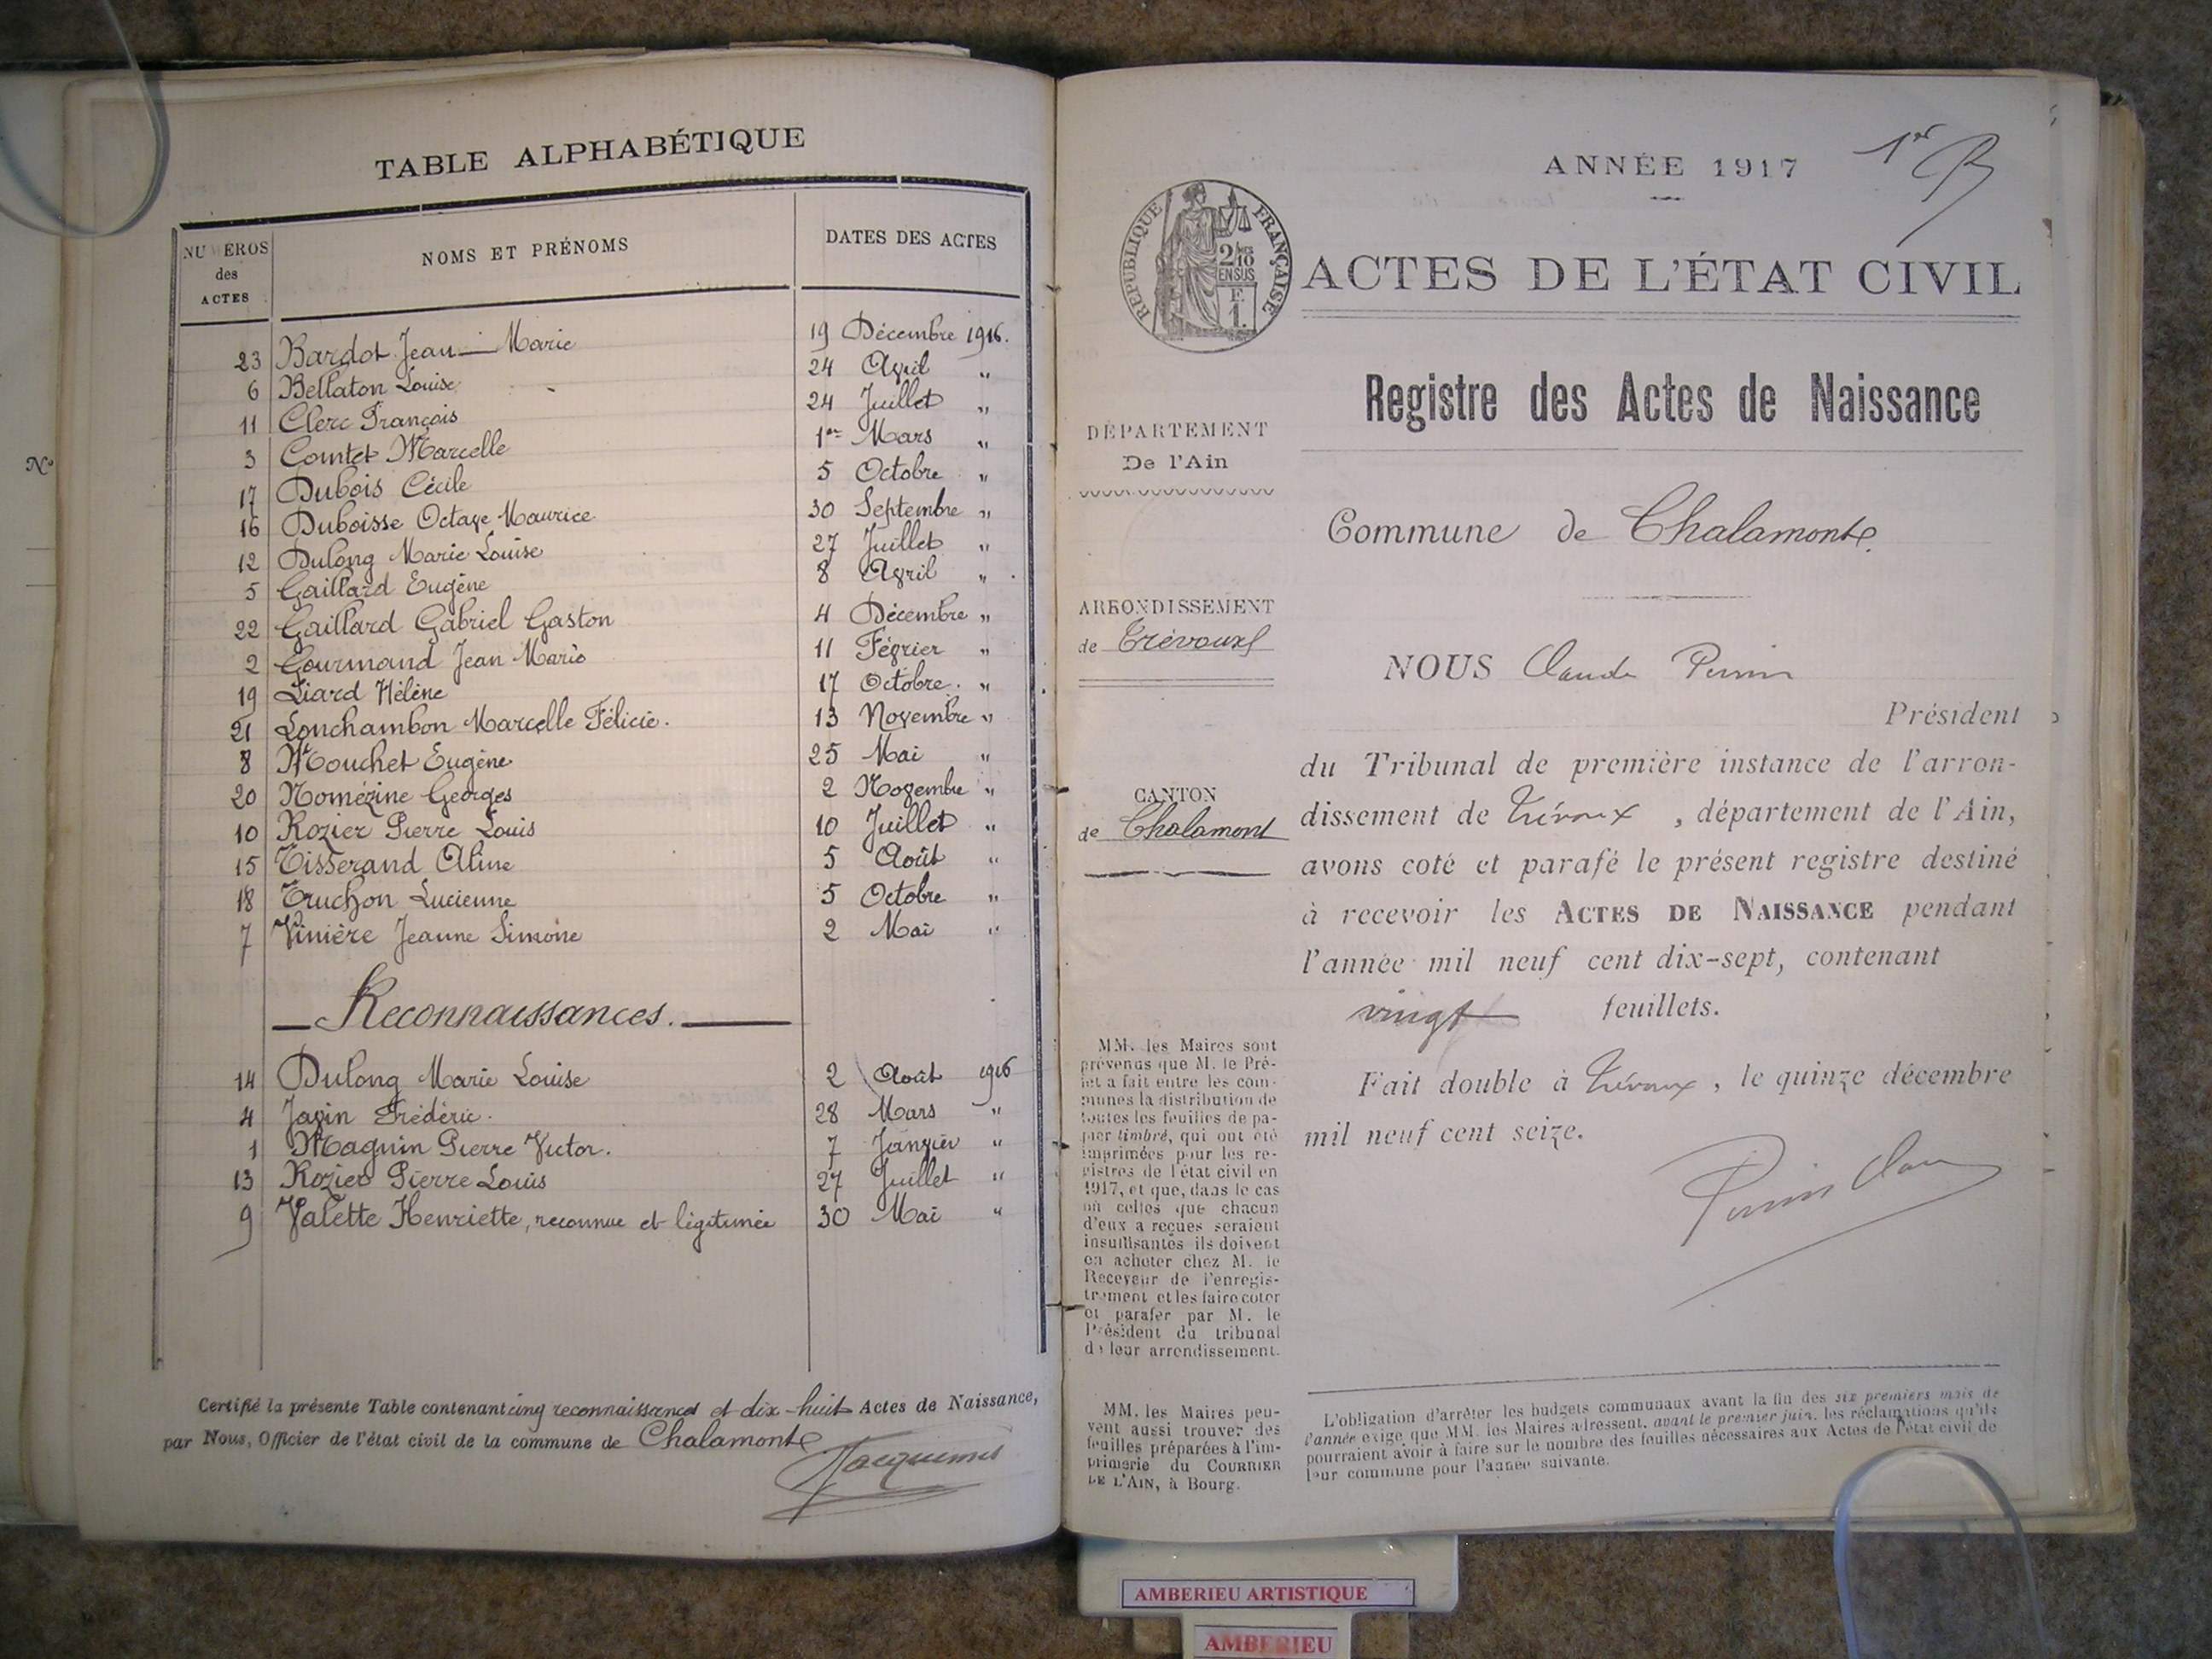 N°
TABLE ALPHABÉTIQUE
NUMEROS des ACTES
NOMS ET PRÉNOMS
DATES DES ACTES
23 Bardot Jean-Marie 19 Décembre 1916.
6 Bellaton Louise 24 Avril "
11 Clerc François 24 Juillet "
3 Comtet Marcelle 1er Mars "
17 Dubois Cécile 5 Octobre "
16 Duboisse Octave Maurice 30 Septembre "
12 Dulong Marie Louise 27 Juillet "
5 Gaillard Eugène 8 Avril "
22 Gaillard Gabriel Gaston 4 Décembre "
2 Gourmand Jean Mario 11 Février "
19 Liard Hélène 17 Octobre. "
21 Lonchambon Marcelle Félicie. 13 Novembre "
8 Mouchet Eugène 25 Mai "
20 Nomézine Georges 2 Novembre "
10 Rozier Pierre Louis 10 Juillet "
15 Tisserand Aline 5 Août "
18 Truchon Lucienne 5 Octobre "
7 Vinière Jeanne Simone 2 Mai "
Reconnaissances.
14 Dulong Marie Louise 2 Août 1916
4 Javin Frédéric. 28 Mars "
1 Magnin Pierre Victor. 7 Janvier "
13 Rozier Pierre Louis 27 Juillet "
9 Valette Henriette, reconnue et légitimée 30 Mai "
Certifié la présente Table contenant cinq reconnaissances et dix-huit Actes de Naissance,
par Nous, Officier de l'état civil de la commune de Chalamont
1er
ANNÉE 1917
RÉPUBLIQUE FRANÇAISE
2 10 MES
EN SUS
F. 1.
ACTES DE L'ÉTAT CIVIL
Registre des Actes de Naissance
DÉPARTEMENT
De l'Ain
Commune de Chalamont
ARRONDISSEMENT
de Trévoux
CANTON
de Chalamont
NOUS Claude Perrin
Président
du Tribunal de première instance de l'arron-
dissement de Trévoux, département de l'Ain,
avons coté et parafé le présent registre destiné
à recevoir les ACTES DE NAISSANCE pendant
l'année mil neuf cent dix-sept, contenant
vingt feuillets.
Fait double à Trévoux, le quinze décembre
mil neuf cent seize.
Perrin Clau
MM. les Maires sont
prévenus que M. le Pré-
fet a fait entre les com-
munes la distribution de
toutes les feuilles de pa-
pier timbré, qui ont été
imprimées pour les re-
gistres de l'état civil en
1917, et que, dans le cas
où celles que chacun
d'eux a reçues seraient
insuffisantes ils doivent
en acheter chez M. le
Receveur de l'enregis-
trement et les faire coter
et parafer par M. le
Président du tribunal
de leur arrondissement.
MM. les Maires peu-
vent aussi trouver des
feuilles préparées à l'im-
primerie du COURRIER
DE L'AIN, à Bourg.
L'obligation d'arrêter les budgets communaux avant la fin des six premiers mois de
l'année exige que MM. les Maires adressent, avant le premier juin, les réclamations qu'ils
pourraient avoir à faire sur le nombre des feuilles nécessaires aux Actes de l'état civil de
leur commune pour l'année suivante.
AMBERIEU ARTISTIQUE
AMBERIEU